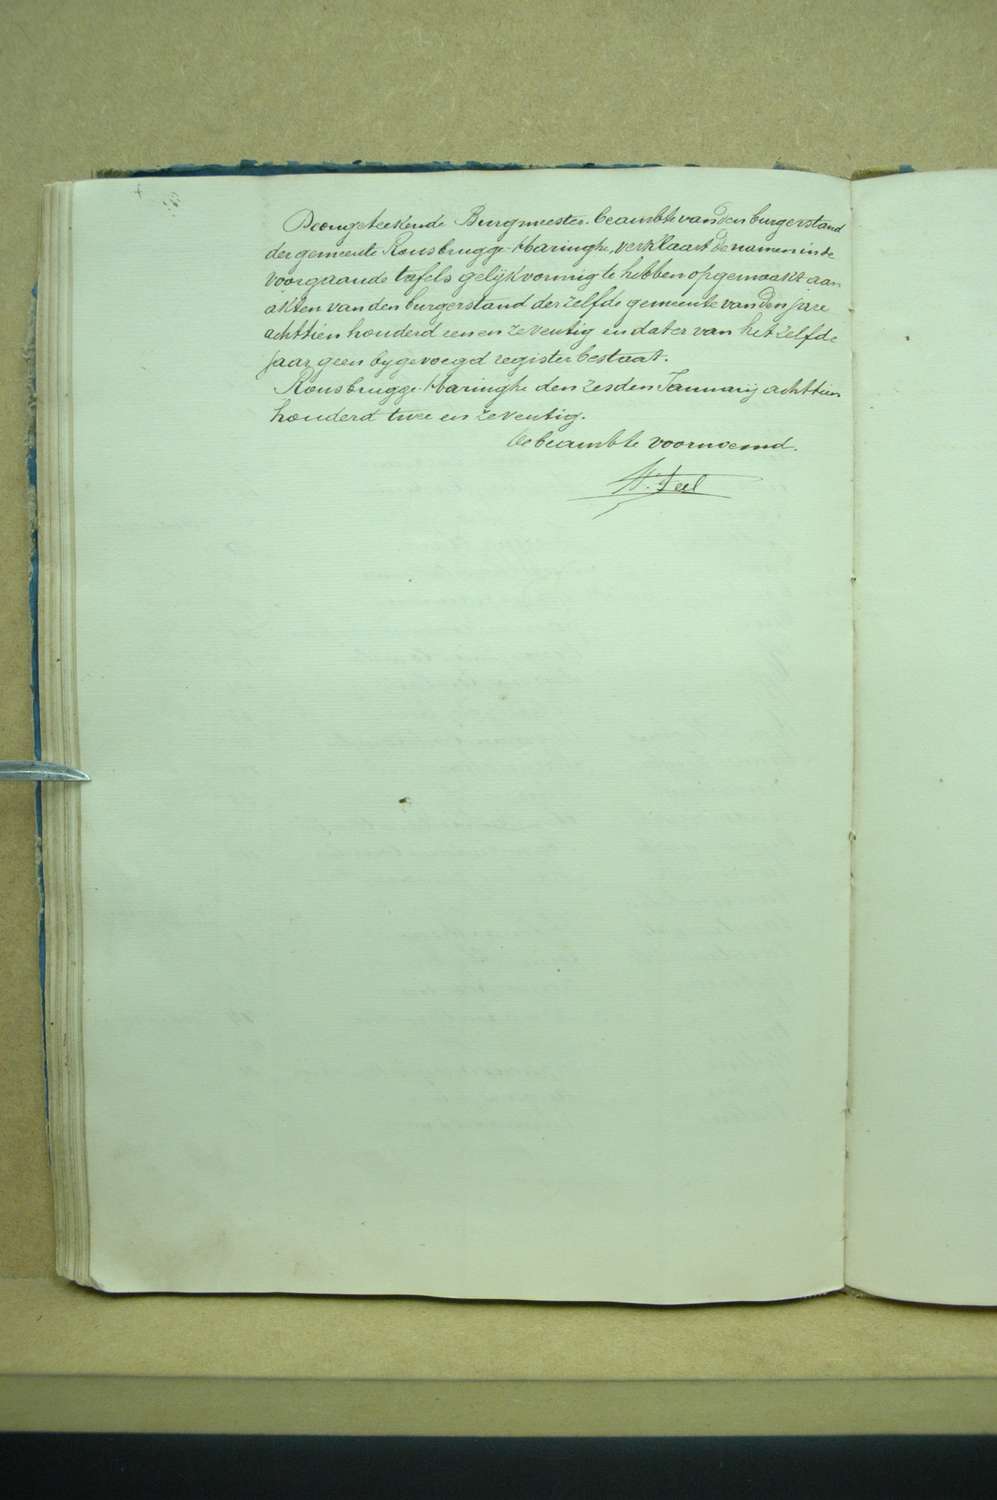 De ongeteekende Burgmeester beambte van den burgerstand
der gemeente Rousbrugge-Haringhe, verklaart de namen in de
voorgaande tafels gelijkvormig te hebben opgemaakt aan
akten van den burgerstand der zelfde gemeente van den jare
achttien honderd een en zeventig en dat er van het zelfde
jaar geen bygevoegd register bestaat.
Rousbrugge-Haringhe den zesden January achttien
honderd twee en zeventig.
De beambte voornoemd.